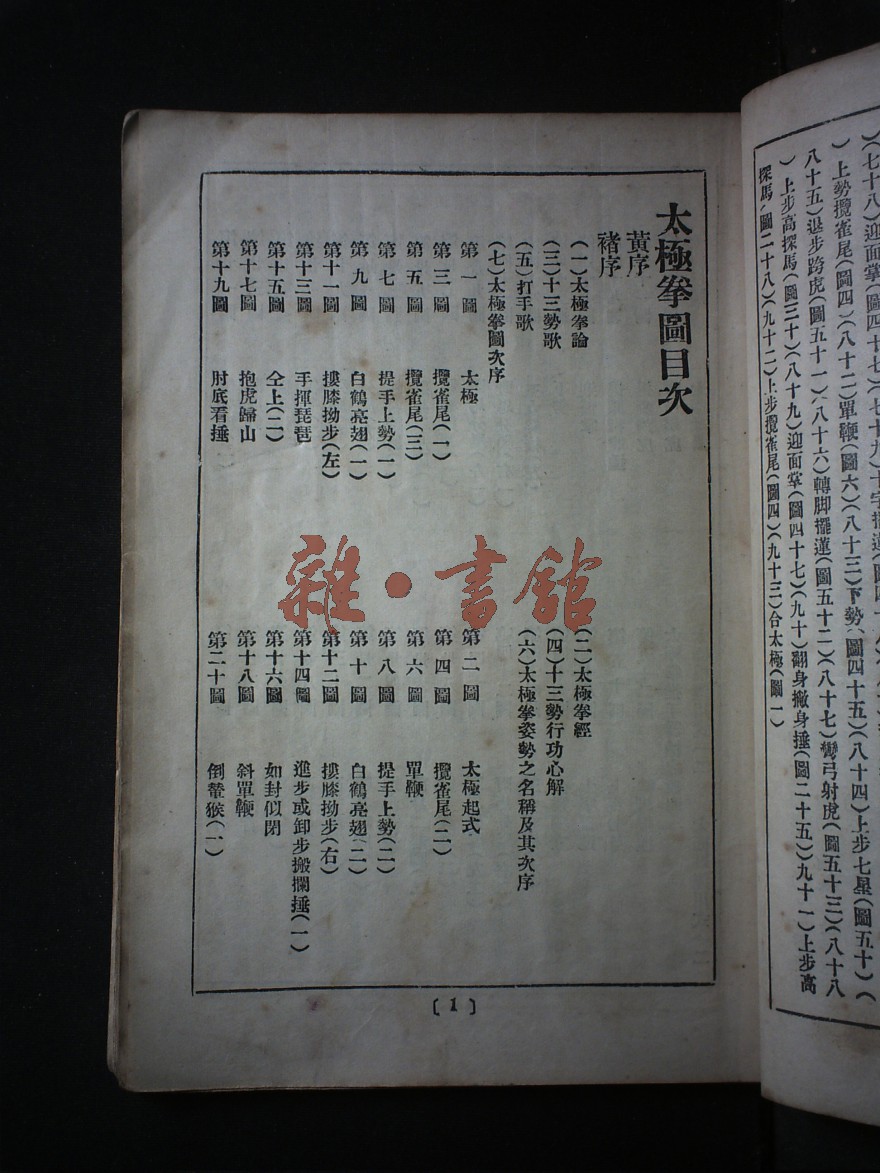 )(七十八)迎面掌(圖四十七)(七十九)十字擺蓮(圖四十
)上勢攬雀尾(圖四)(八十二)單鞭(圖六)(八十三)下勢(圖四十五)(八十四)上步七星(圖五十)(
八十五)退步跨虎(圖五十一)(八十六)轉脚擺蓮(圖五十二)(八十七)彎弓射虎(圖五十三)(八十八
)上步高探馬(圖三十)(八十九)迎面掌(圖四十七)(九十)翻身撇身捶(圖二十五)(九十一)上步高
探馬(圖二十八)(九十二)上步攬雀尾(圖四)(九十三)合太極(圖一)
太極拳圖目次
黃序
褚序
(一)太極拳論 (二)太極拳經
(三)十三勢歌 (四)十三勢行功心解
(五)打手歌 (六)太極拳姿勢之名稱及其次序
(七)太極拳圖次序
第一圖 太極 第二圖 太極起式
第三圖 攬雀尾(一) 第四圖 攬雀尾(二)
第五圖 攬雀尾(三) 第六圖 單鞭
第七圖 提手上勢(一) 第八圖 提手上勢(二)
第九圖 白鶴亮翅(一) 第十圖 白鶴亮翅(二)
第十一圖 摟膝拗步(左) 第十二圖 摟膝拗步(右)
第十三圖 手揮琵琶 第十四圖 進步或卸步搬攔捶(一)
第十五圖 仝上(二) 第十六圖 如封似閉
第十七圖 抱虎歸山 第十八圖 斜單鞭
第十九圖 肘底看捶 第二十圖 倒輦猴(一)
〔1〕
雜·書館